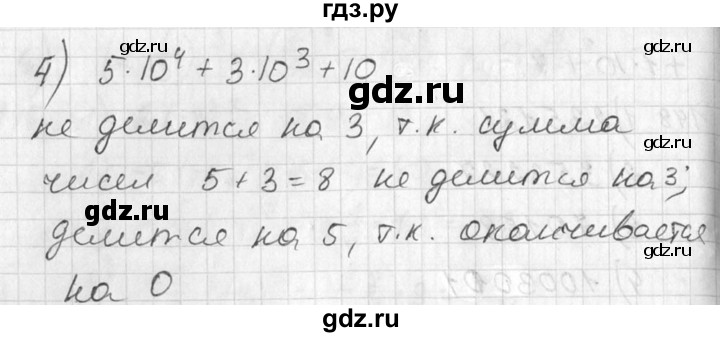 гдз.ру
gdz.ru gdz.ru
4) 5·10⁴ + 3·10³ + 10
gdz.ru
не делится на 3, т.к. сумма
чисел 5 + 3 = 8 не делится на 3;
gdz.ru gdz.ru
делится на 5, т.к. оканчивается
на 0
gdz.ru gdz.ru